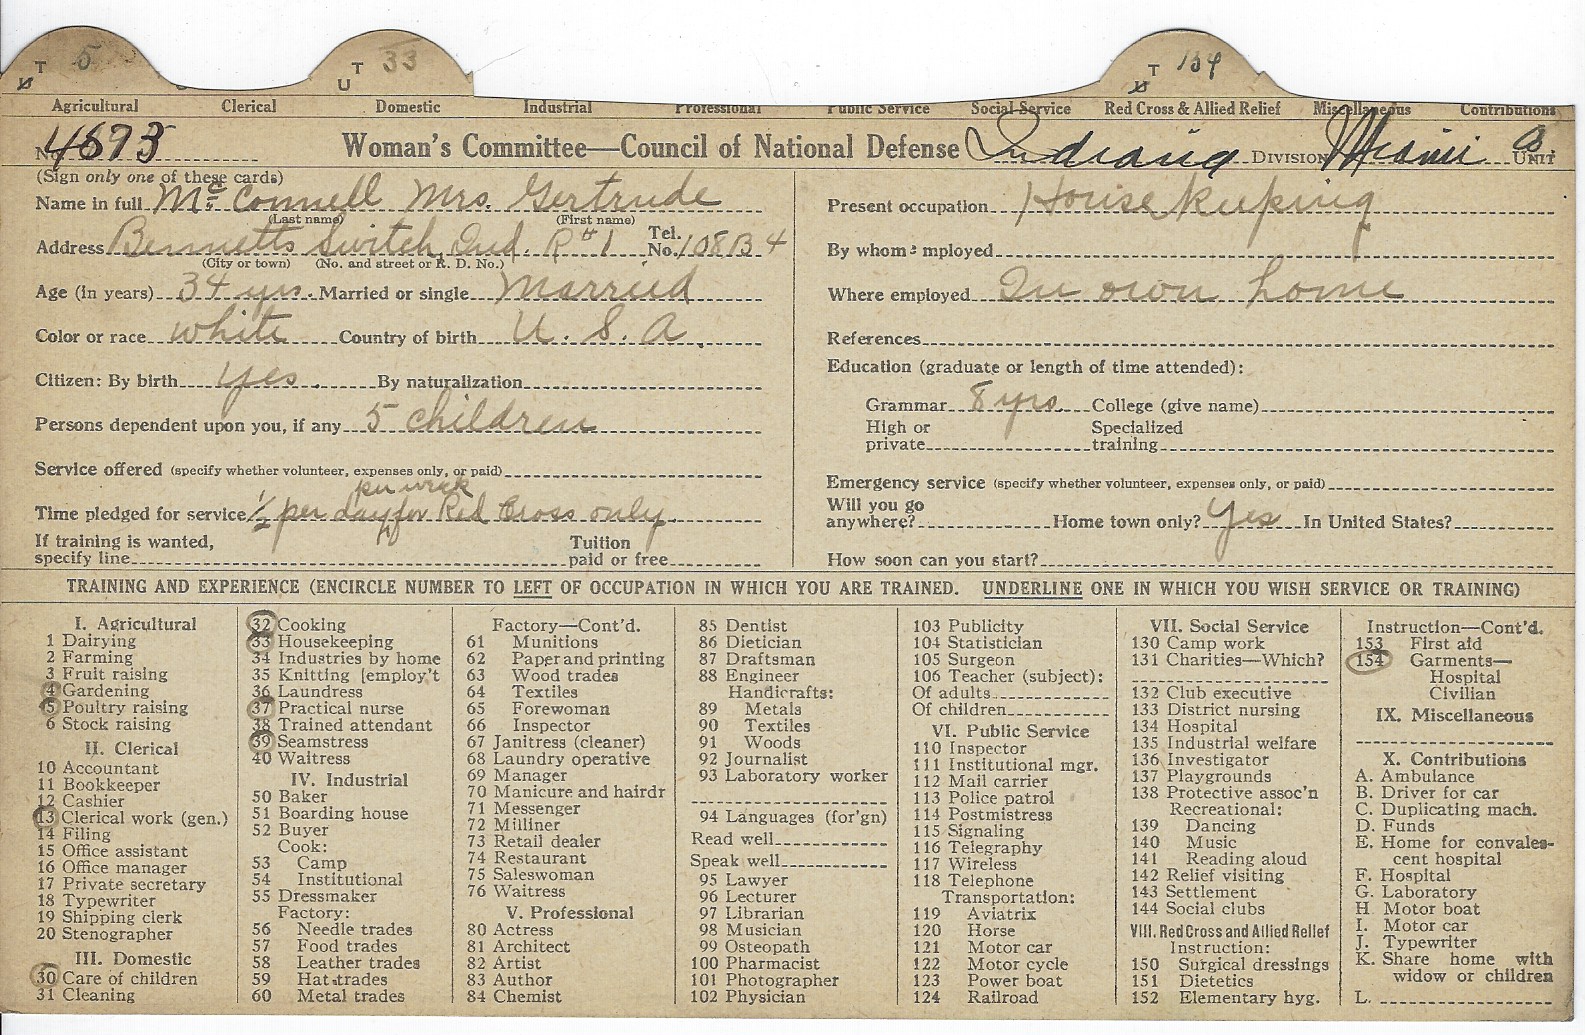 T 5 T 33 T 154
U U U
Agricultural Clerical Domestic Industrial Professional Public Service Social Service Red Cross & Allied Relief Miscellaneous Contributions
No. 4693 Woman's Committee—Council of National Defense Indiana DIVISION Miami UNIT
(Sign only one of these cards)
Name in full McConnell Mrs. Gertrude
(Last name) (First name)
Address Bennetts Switch, Ind. R#1 Tel. No. 108B4
(City or town) (No. and street or R. D. No.)
Age (in years) 34 yrs. Married or single Married
Color or race white Country of birth U. S. A.
Citizen: By birth yes. By naturalization
Persons dependent upon you, if any 5 children
Service offered (specify whether volunteer, expenses only, or paid)
per week
Time pledged for service 1/2 per day for Red Cross only.
If training is wanted, Tuition
specify line paid or free
Present occupation House keeping
By whom employed
Where employed In own home
References
Education (graduate or length of time attended):
Grammar 8 yrs. College (give name)
High or Specialized
private training
Emergency service (specify whether volunteer, expenses only, or paid)
Will you go
anywhere? Home town only? Yes In United States?
How soon can you start?
TRAINING AND EXPERIENCE (ENCIRCLE NUMBER TO LEFT OF OCCUPATION IN WHICH YOU ARE TRAINED. UNDERLINE ONE IN WHICH YOU WISH SERVICE OR TRAINING)
I. Agricultural
1 Dairying
2 Farming
3 Fruit raising
4 Gardening
5 Poultry raising
6 Stock raising
II. Clerical
10 Accountant
11 Bookkeeper
12 Cashier
13 Clerical work (gen.)
14 Filing
15 Office assistant
16 Office manager
17 Private secretary
18 Typewriter
19 Shipping clerk
20 Stenographer
III. Domestic
30 Care of children
31 Cleaning
32 Cooking
33 Housekeeping
34 Industries by home
35 Knitting [employ't
36 Laundress
37 Practical nurse
38 Trained attendant
39 Seamstress
40 Waitress
IV. Industrial
50 Baker
51 Boarding house
52 Buyer
Cook:
53 Camp
54 Institutional
55 Dressmaker
Factory:
56 Needle trades
57 Food trades
58 Leather trades
59 Hat trades
60 Metal trades
Factory—Cont'd.
61 Munitions
62 Paper and printing
63 Wood trades
64 Textiles
65 Forewoman
66 Inspector
67 Janitress (cleaner)
68 Laundry operative
69 Manager
70 Manicure and hairdr
71 Messenger
72 Milliner
73 Retail dealer
74 Restaurant
75 Saleswoman
76 Waitress
V. Professional
80 Actress
81 Architect
82 Artist
83 Author
84 Chemist
85 Dentist
86 Dietician
87 Draftsman
88 Engineer
Handicrafts:
89 Metals
90 Textiles
91 Woods
92 Journalist
93 Laboratory worker
94 Languages (for'gn)
Read well
Speak well
95 Lawyer
96 Lecturer
97 Librarian
98 Musician
99 Osteopath
100 Pharmacist
101 Photographer
102 Physician
103 Publicity
104 Statistician
105 Surgeon
106 Teacher (subject):
Of adults
Of children
VI. Public Service
110 Inspector
111 Institutional mgr.
112 Mail carrier
113 Police patrol
114 Postmistress
115 Signaling
116 Telegraphy
117 Wireless
118 Telephone
Transportation:
119 Aviatrix
120 Horse
121 Motor car
122 Motor cycle
123 Power boat
124 Railroad
VII. Social Service
130 Camp work
131 Charities—Which?
132 Club executive
133 District nursing
134 Hospital
135 Industrial welfare
136 Investigator
137 Playgrounds
138 Protective assoc'n
Recreational:
139 Dancing
140 Music
141 Reading aloud
142 Relief visiting
143 Settlement
144 Social clubs
VIII. Red Cross and Allied Relief
Instruction:
150 Surgical dressings
151 Dietetics
152 Elementary hyg.
Instruction—Cont'd.
153 First aid
154 Garments—
Hospital
Civilian
IX. Miscellaneous
X. Contributions
A. Ambulance
B. Driver for car
C. Duplicating mach.
D. Funds
E. Home for convales-
cent hospital
F. Hospital
G. Laboratory
H. Motor boat
I. Motor car
J. Typewriter
K. Share home with
widow or children
L.